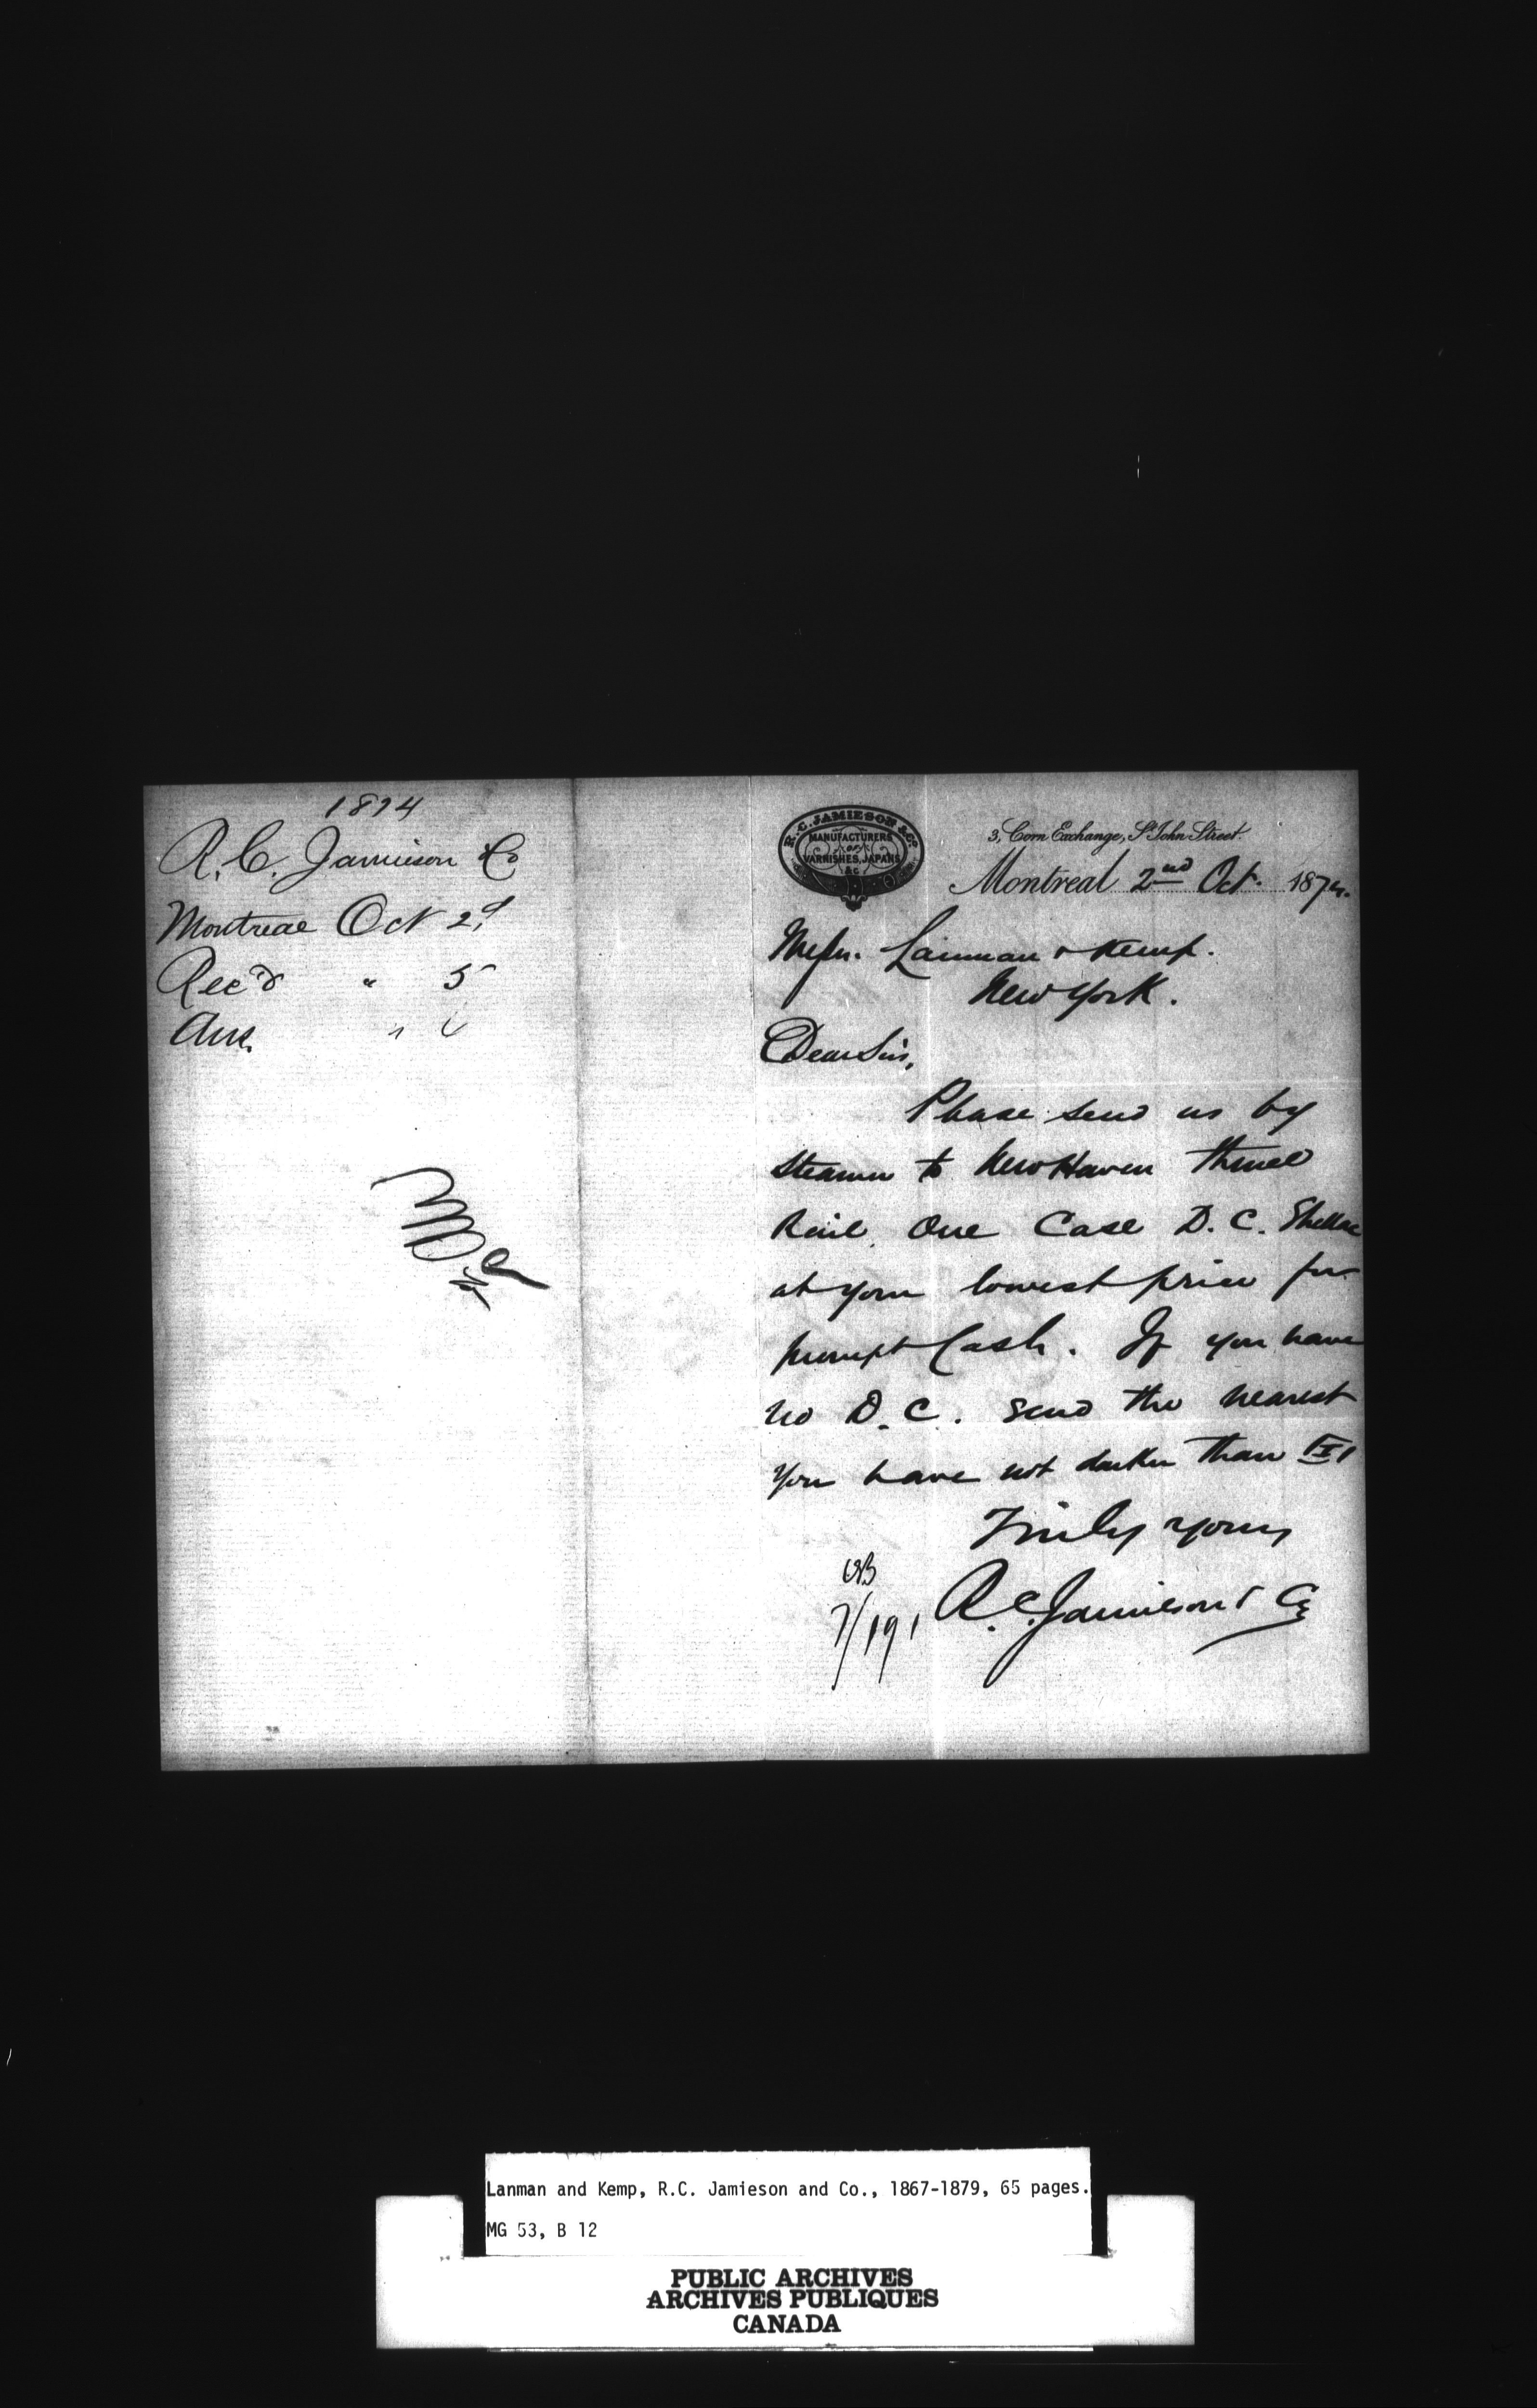 1874
R. C. Jamieson & Co
Montreal Oct 2d
Rec'd " 5
Ans. "
R. C. JAMIESON & Co.
MANUFACTURERS
OF
VARNISHES, JAPANS
&c
3, Corn Exchange, St. John Street.
Montreal 2nd Oct. 1874.
Messrs. Lanman & Kemp.
New York.
Dear Sirs,
Please send us by
Steamer to New Haven thence
Rail, One Case D. C. Shellac
at your lowest price for
prompt Cash. If you have
no D. C. send the nearest
you have not darker than
Truly yours
R. C. Jamieson & Co
7/191
Lanman and Kemp, R.C. Jamieson and Co., 1867-1879, 65 pages.
MG 53, B 12
PUBLIC ARCHIVES
ARCHIVES PUBLIQUES
CANADA